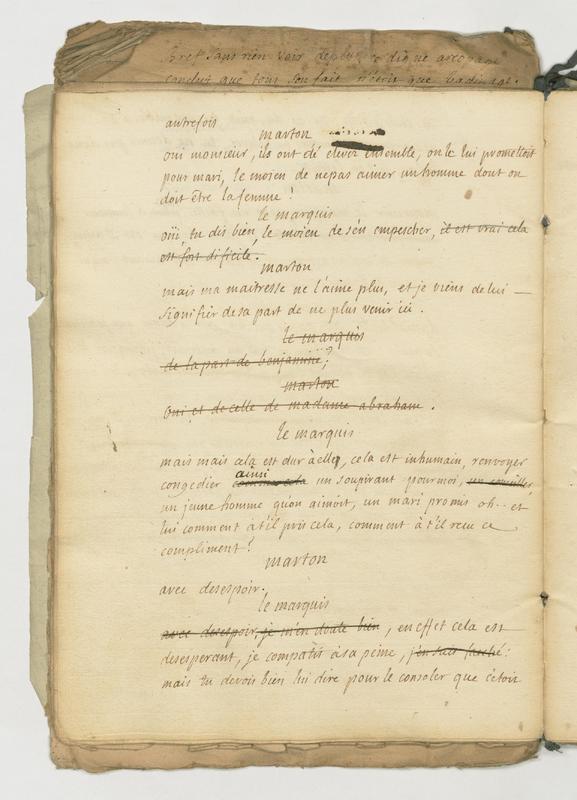 Bref sans rien voir de plus digne
conclut que tout son fait n'étoit que badinage.
autrefois
marton
oui monsieur, ils ont été elevez ensemble, on le lui promettoit
pour mari, le moïen de ne pas aimer un homme dont on
doit être la femme !
le marquis
oüi, tu dis bien, le moïen de s'en empescher, il est vrai cela
est fort dificile.
marton
mais ma maitresse ne l'aime plus, et je viens de lui
signifier de sa part de ne plus venir ici.
le marquis
de la part de benjamine ?
marton
oui et de celle de madame abraham.
le marquis
mais mais cela est dur à elle, cela est inhumain, renvoyer
ainsi
congedier comme cela un soupirant pour moi, un conseiller,
un jeune homme qu'on aimoit, un mari promis oh.. et
lui comment a t'il pris cela, comment à t'il receu ce
compliment ?
marton
avec desespoir.
le marquis
avec desespoir, je m'en doute bien, en effet cela est
desesperant, je compatis à sa peine, j'en suis fasché :
mais tu devois bien lui dire pour le consoler que c'étoit